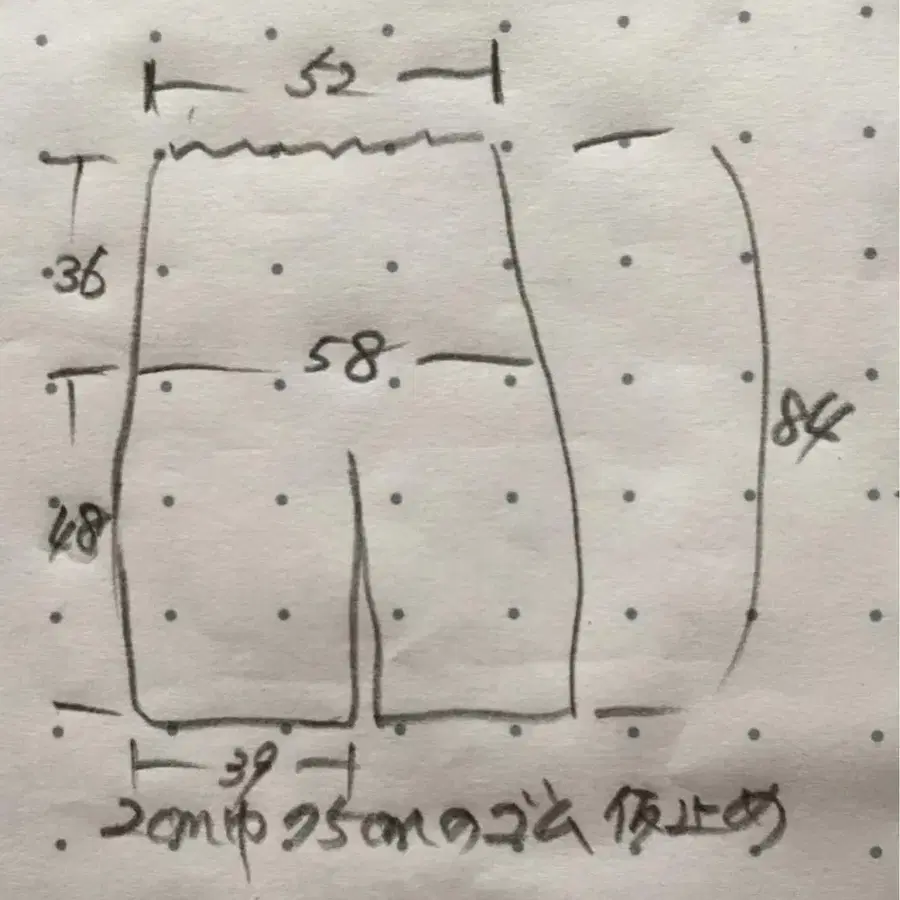 52
36
58
84
48
39
2cm巾 75cmのゴム 仮止め